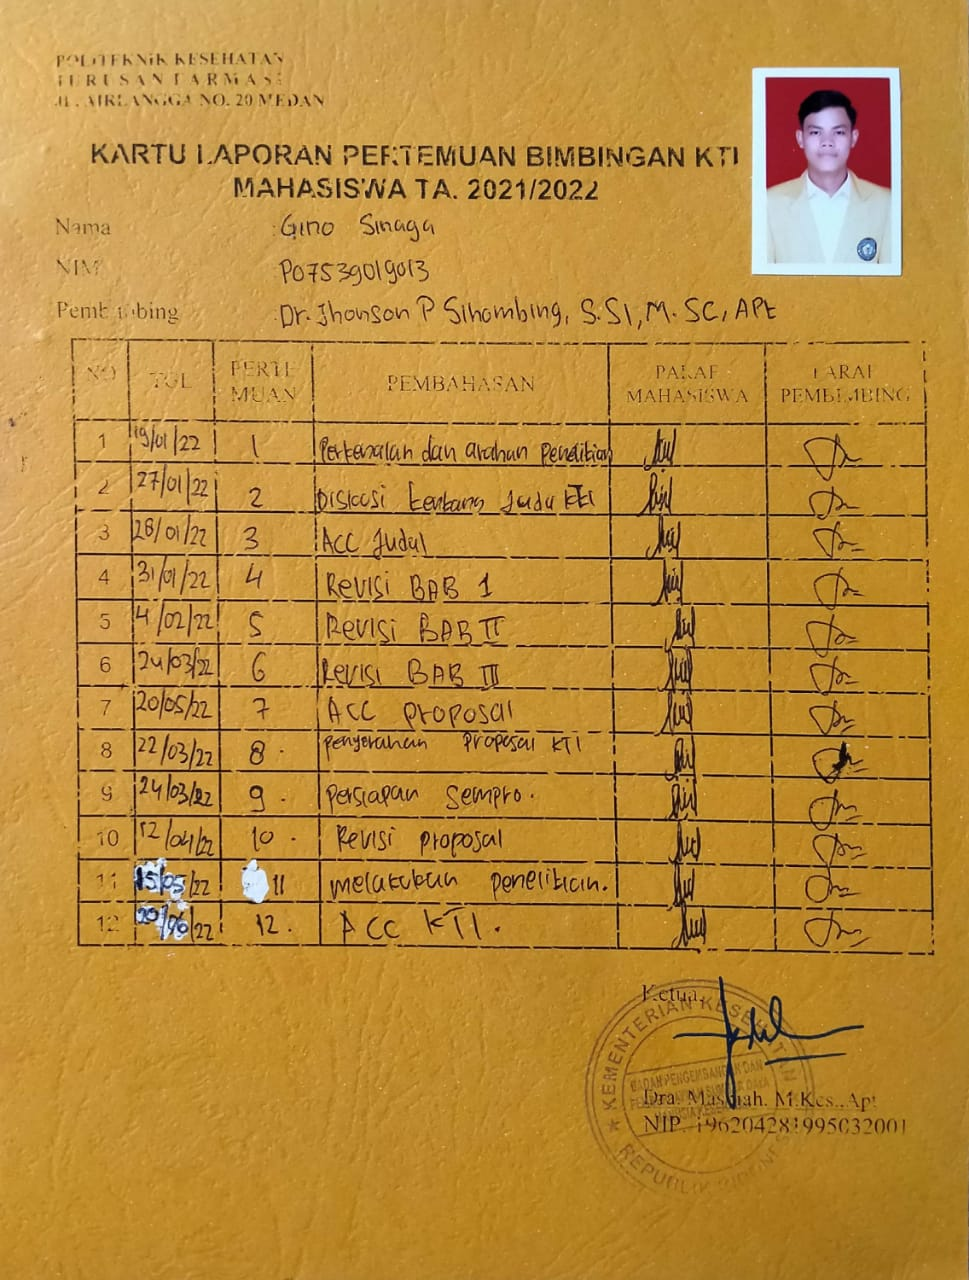 POLITEKNIK KESEHATAN
JURUSAN FARMASI
JL. AIRLANGGA NO. 20 MEDAN
KARTU LAPORAN PERTEMUAN BIMBINGAN KTI
MAHASISWA TA. 2021/2022
Nama : Gino Sinaga
NIM : P07539019013
Pembimbing : Dr. Jhonson P Sihombing, S.Si, M.SC, APt
NO TGL PERTEMUAN PEMBAHASAN PARAF MAHASISWA PARAF PEMBIMBING
1 19/01/22 1 Perkenalan dan arahan penelitian
2 27/01/22 2 Diskusi tentang Judul KTI
3 28/01/22 3 ACC Judul
4 31/01/22 4 Revisi BAB 1
5 4/02/22 5 Revisi BAB II
6 24/03/22 6 Revisi BAB III
7 20/05/22 7 ACC proposal
8 22/03/22 8. penyerahan proposal KTI
9 24/03/22 9. persiapan sempro.
10 12/04/22 10. Revisi proposal
11 15/05/22 11 melakukan penelitian.
12 20/06/22 12. ACC KTI.
Ketua,
KEMENTERIAN KESEHATAN
BADAN PENGEMBANGAN DAN
REPUBLIK INDONESIA
Dra. Masniah, M.Kes., Apt
NIP. 196204281995032001